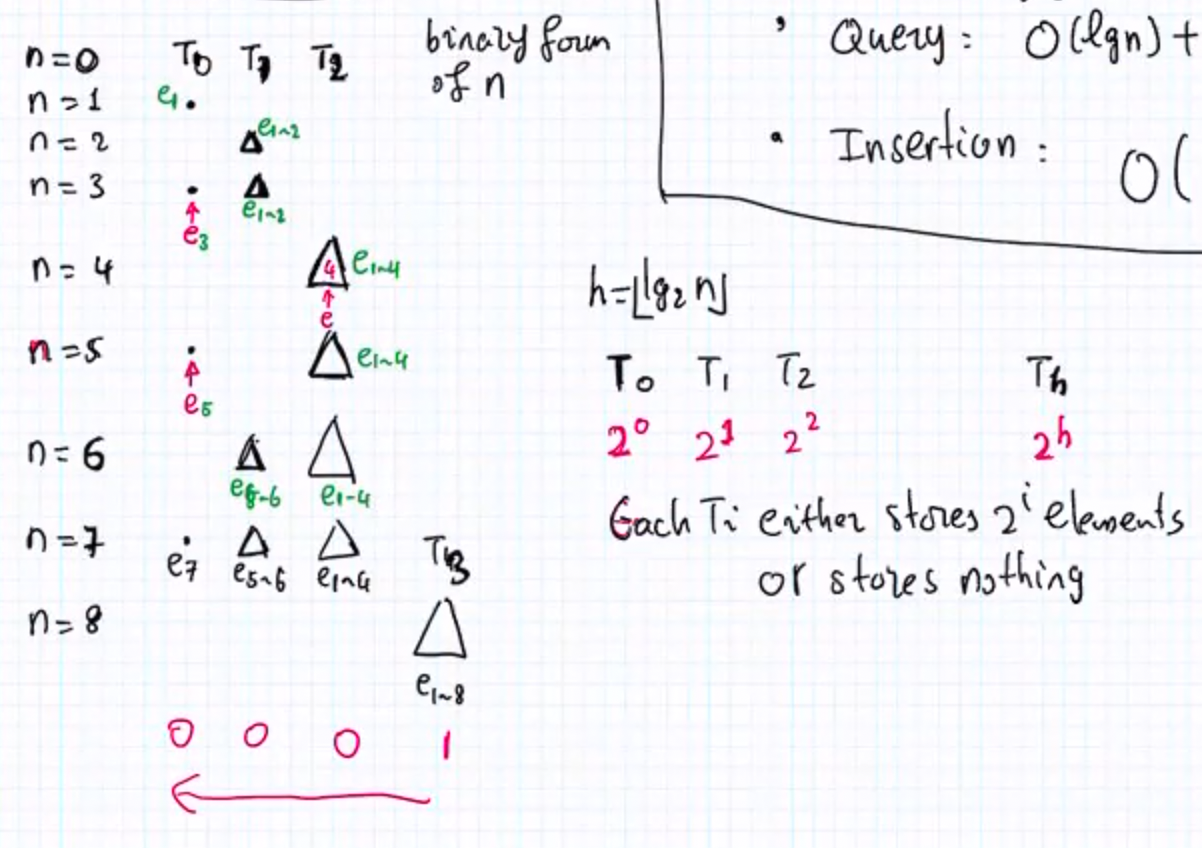 n=0 T0 T1 T2 binary form
of n
n=1 e1
n=2 e1~2
n=3 e1~2
e3
n=4 4 e1~4
e
n=5 e1~4
e5
n=6
e5~6 e1~4
n=7 T3
e7 e5~6 e1~4
n=8
e1~8
0 0 0 1
• Query: O(lgn) +
• Insertion: O(
h=⌊lg2 n⌋
T0 T1 T2 Th
2^0 2^1 2^2 2^h
Each Ti either stores 2^i elements
or stores nothing